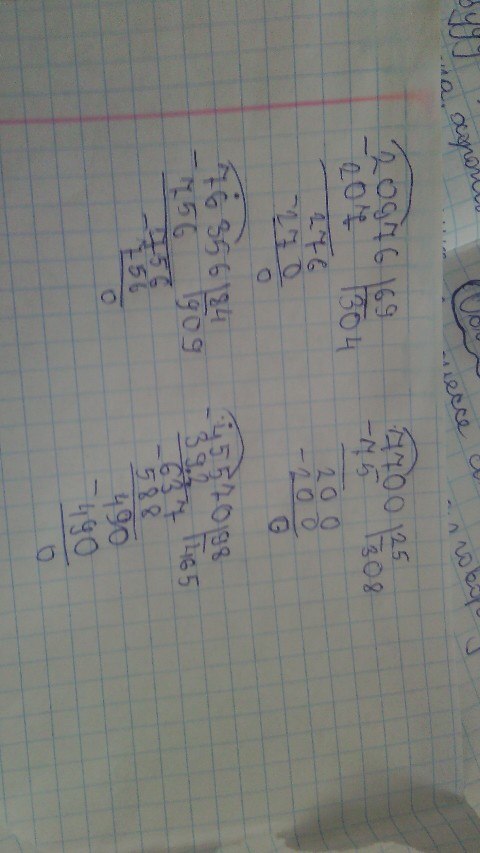 20976 | 69
- 207 | 304
276
- 270
0
7700 | 25
- 75 | 308
200
- 200
0
76356 | 84
- 756 | 909
756
- 756
0
45570 | 98
- 392 | 465
637
- 588
490
- 490
0